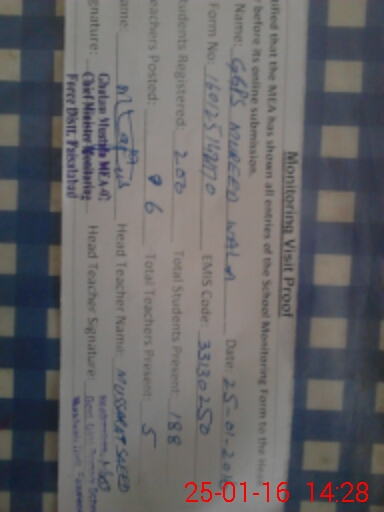 Monitoring Visit Proof
ified that the MEA has shown all entries of the School Monitoring Form to the Head
before its online submission.
Name: GGPS MUREED WALA Date: 25-01-2016
Form No: EMIS Code: 33130250
tudents Registered: 200 Total Students Present: 188
eachers Posted: 6 Total Teachers Present: 5
ame: Head Teacher Name: MUSSARAT SAEED
gnature: Head Teacher Signature:
Ghulam Mustafa MEA
Chief Minister Monitoring
Force Distt. Faisalabad
25-01-16 14:28